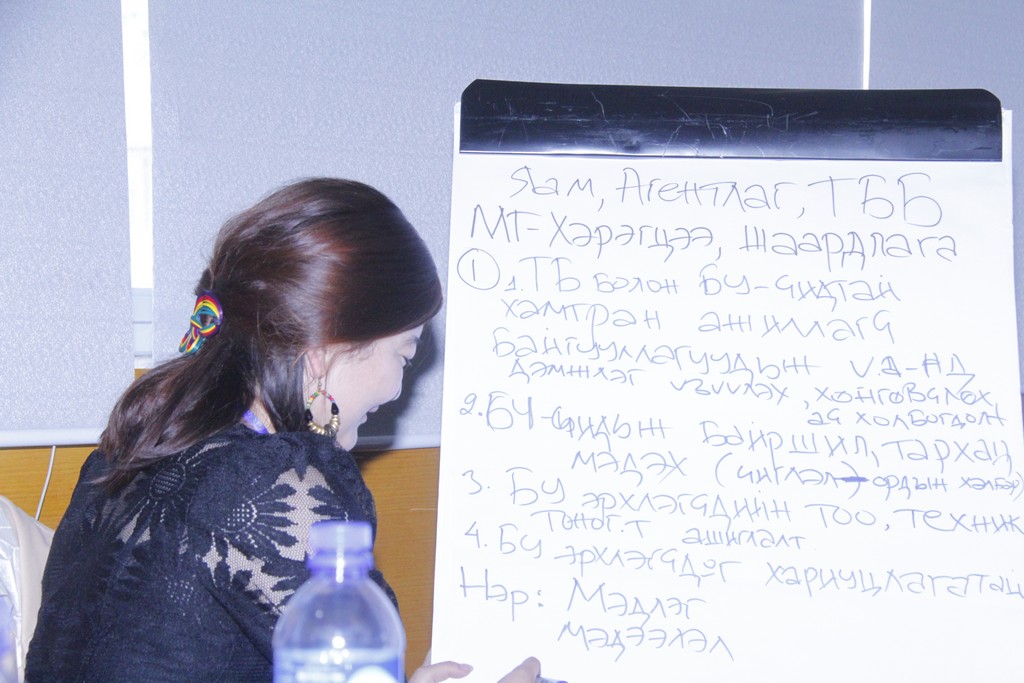 Яам, Агентлаг, ТББ
МТ-Хэрэгцээ, шаардлага
① 1. ТБ болон БУ-чидтай
хамтран ажиллагч
байгууллагуудын
дэмжлэг үзүүлэх,
ач холбогдолт
2. БУ-чидын байршил, тархац
мэдэх (чиглэл) ордын хэлбэр)
3. БУ эрхлэгчдийн тоо, техник
тоног.т ашиглалт
4. БУ эрхлэгчдэг хариуцлагатай
Нэр: Мэдлэг
мэдээхэл